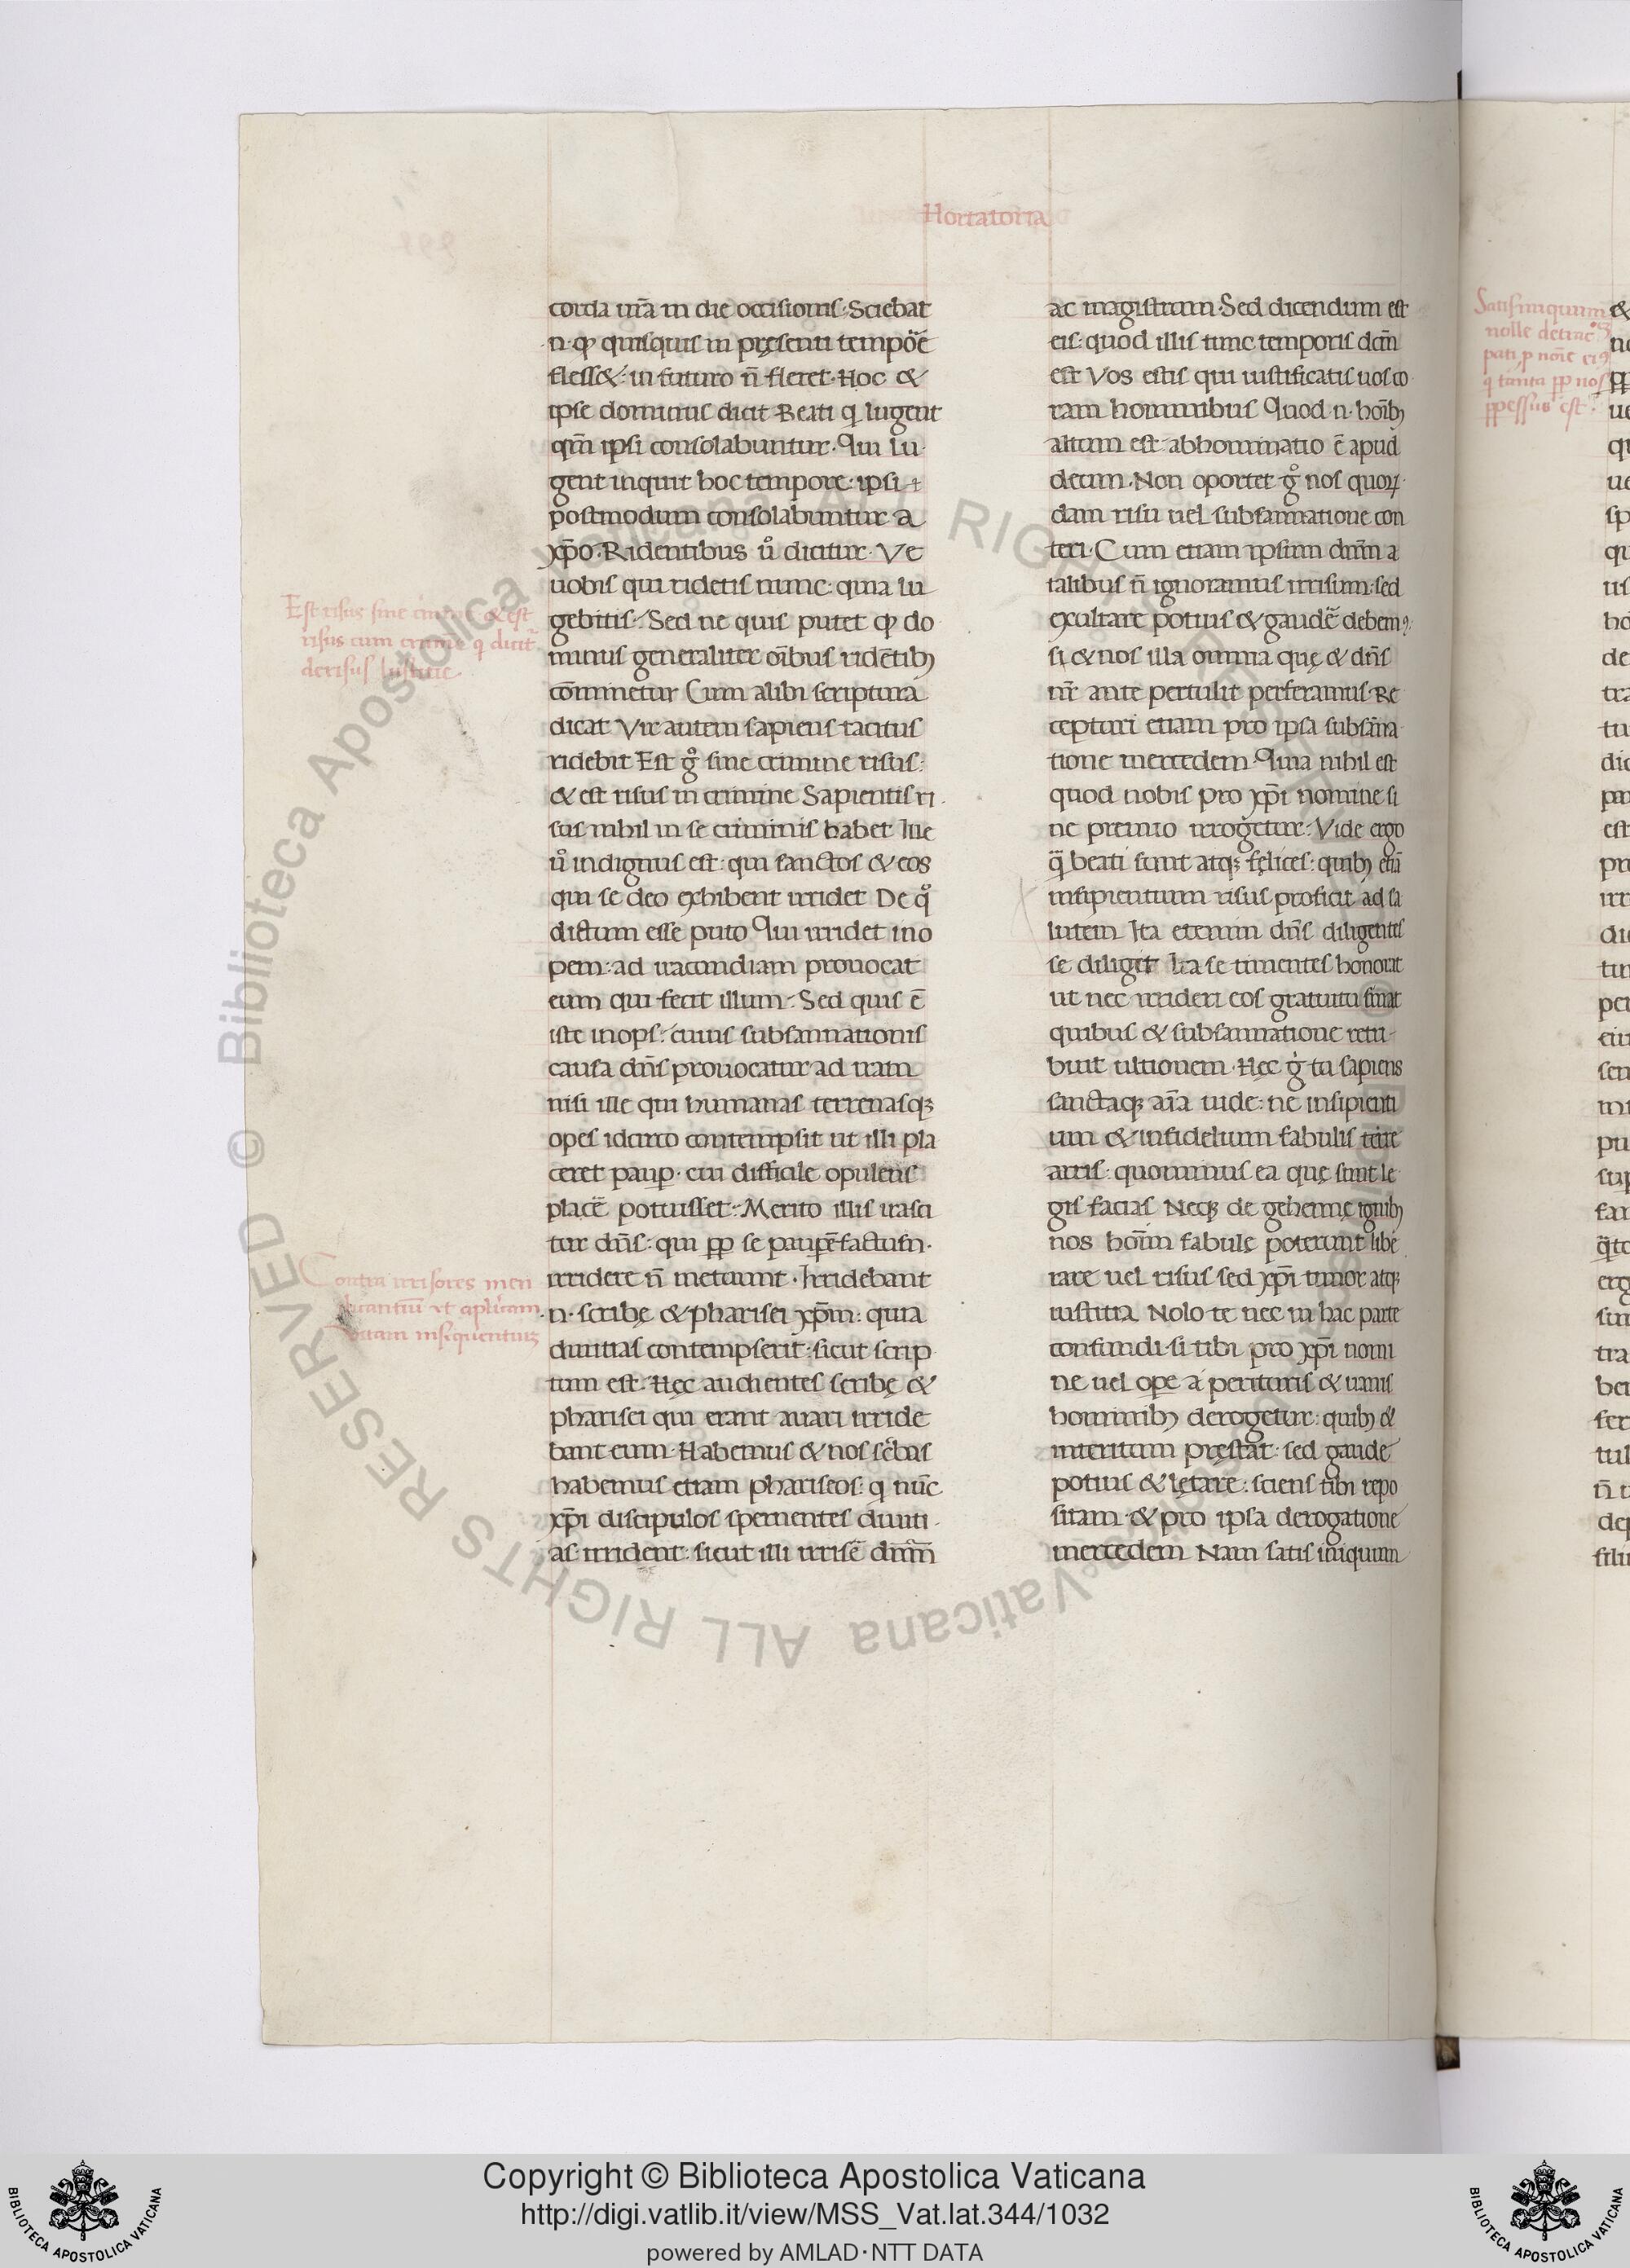 Hortatoria
corda ur̄a in die occisionis. Sciebat
.n. ꝙ quisquis in pręsenti tempor̄e
flesset: in futuro n̄ fleret. Hoc &
ipse dominus dicit Beati q̇ lugent
qm̄ ipsi consolabuntur. Qui lu
gent inquit hoc tempore: ipsi
postmodum consolabuntur a
xp̄o. Ridentibus ů dicitur. Ve
uobis qui ridetis nunc: quia lu
gebitis. Sed ne quis putet ꝙ do
minus generaliter oīibus ridētibꝫ
cōminetur Cum alibi scriptura
dicat Vir autem sapiens tacitus
ridebit Est g̊ sine crimine risus:
& est risus in crimine Sapientis ri
sus nihil in se criminis habet Ille
ů indignus est: qui sanctos & eos
qui se deo exhibent irridet De q̊
dictum esse puto Qui irridet ino
pem: ad iracundiam prouocat
eum qui fecit illum. Sed quis ē
iste inops: cuius subsannationis
causa dn̄s prouocatur ad iram
nisi ille qui humanas terrenasqꝫ
opes idcirco contempsit ut illi pla
ceret pauꝑ. cui difficile opulens
placē potuisset. Merito illis irasci
tur dn̄s: qui ꝓp se pauꝑē factum.
irridere n̄ metuunt. Irridebant
.n. scribę & pharisei xp̄m: quia
diuitias contempserit: sicut scrip
tum est. Hęc audientes scribę &
pharisei qui erant auari irride
bant eum. Habemus & nos scribas
habemus etiam phariseos: q̇ nūc
xp̄i discipulos spernentes diuiti
as irrident: sicut illi irrisē dn̄m
Est risus sine crimine & est
risus cum crimine q̇ dicit̄
derisus
Contra irrisores men
dicantiū et apl̄icam
uitam insequentiuꝫ
ac magistrum. Sed dicendum est
eis: quod illis tunc temporis dcm̄
est Vos estis qui iustificatis uos co
ram hominibus Quod .n. hoībꝫ
altum est abhominatio ē apud
deum. Non oportet g̊ nos quoꝝ
dam risu uel subsannatione con
teri. Cum etiam ipsum dn̄m a
talibus n̄ ignoramus irrisum: sed
exultare potius & gaudē debemꝰ
si & nos illa omnia quę & dn̄s
nr̄ ante pertulit perferamus. Re
cepturi etiam pro ipsa subsāna
tione mercedem. Quia nihil est
quod nobis pro xp̄i nomine si
ne premio irrogetur. Vide ergo
q̄ beati sunt atqꝫ felices: quibꝫ etiā
insipientium risus proficit ad sa
lutem Ita etenim dn̄s diligentes
se diligit Ita se timentes honorat
ut nec irrideri eos gratuitu sinat
quibus & subsannatione retri
buit ultionem. Hęc g̊ tu sapiens
sanctaqꝫ aīa uide: ne insipienti
um & infidelium fabulis terre
aris: quominus ea quę sunt le
gis facias Neqꝫ de gehenne ignibꝫ
nos hoīm fabulę poterunt libe
rare uel risus sed xp̄i timor atqꝫ
iustitia Nolo te nec in hac parte
confundi. si tibi pro xp̄i nomi
ne uel ope a perituris & uanis
hominibꝫ derogetur: quibꝫ &
interitum pręstat: sed gaude
potius & lętare: sciens tibi repo
sitam & pro ipsa derogatione
mercedem Nam satis iniquum
Satis iniquum
nolle detrac
pati ꝑ nōie eiꝰ
q̇ tanta ꝓp nos
ꝑpessus est.
Copyright © Biblioteca Apostolica Vaticana
http://digi.vatlib.it/view/MSS_Vat.lat.344/1032
powered by AMLAD·NTT DATA
BIBLIOTECA APOSTOLICA VATICANA
BIBLIOTECA APOSTOLICA VATICANA